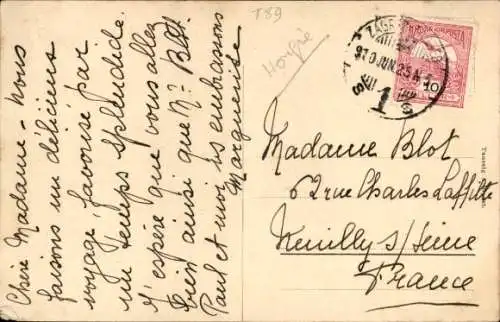 T89
Hongrie
Chère Madame - nous
faisons un délicieux
voyage, favorisé par
un temps splendide.
J'espère que vous allez
bien ainsi que Mr Blot.
Paul et moi vs embrassons
Marguerite
MAGYAR KIR. POSTA
10
910 JUN. 25
1
Madame Blot
62 rue Charles Laffitte
Neuilly s/Seine
France